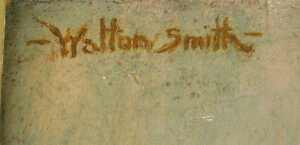 -Walton Smith-